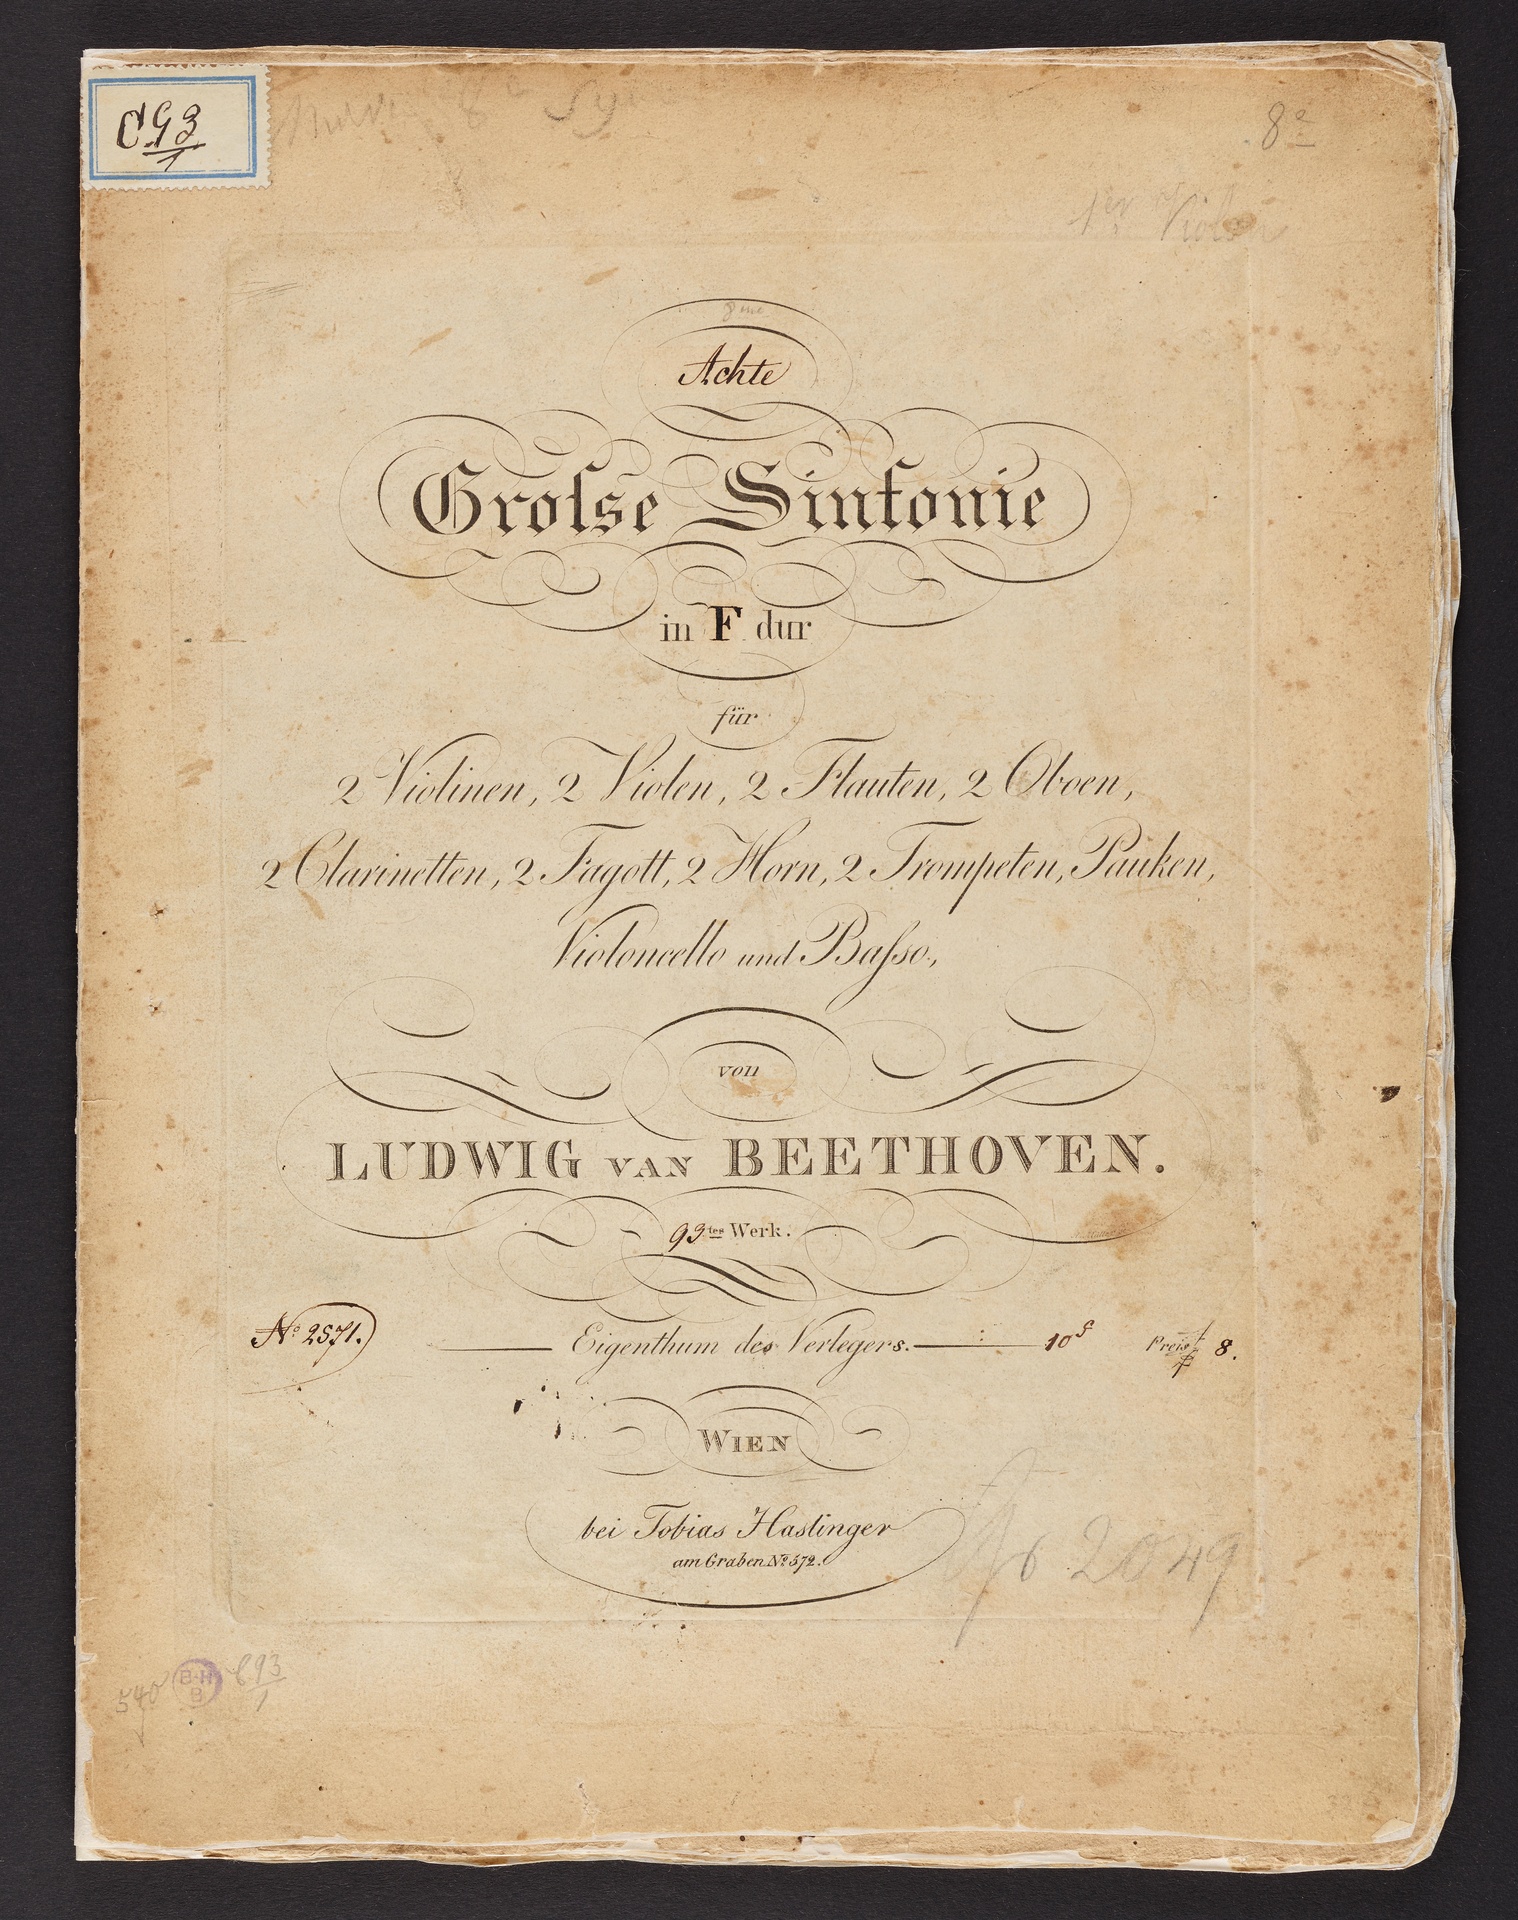 C 93
1
8e
Violon
8me
Achte
Groſse Sinfonie
in F dur
für
2 Violinen, 2 Violen, 2 Flauten, 2 Oboen,
2 Clarinetten, 2 Fagott, 2 Horn, 2 Trompeten, Pauken,
Violoncello und Baſso,
von
LUDWIG VAN BEETHOVEN.
93tes Werk.
No 2571. Eigenthum des Verlegers. 10 Preis f 8.
WIEN
bei Tobias Haslinger
am Graben No 572.
2049
540 B·H B C 93
1